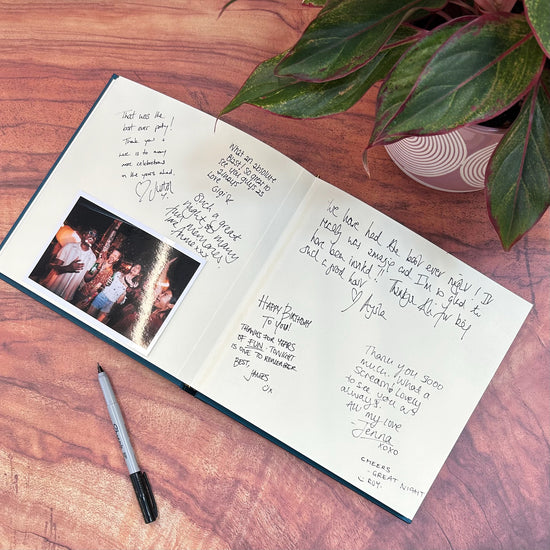 That was the
best ever party!
Thank you &
here is to many
more celebrations
in the years ahead.
What an absolute
Blast! So great to
see you guys as
always
Love
Gigi x
Such a great
night so many
fun memories
love Anne xxx
We have had the best ever night! It
really was amazing and I'm so glad to
have been invited! Thanks
and a good hair
HAPPY BIRTHDAY
TO YOU!
THANKS FOR YEARS
OF FUN. TONIGHT
IS ONE TO REMEMBER
BEST,
JAMES
OX
Thank you sooo
much. What a
scream & lovely
to see you as
always.
All my love
- Jenna
xoxo
CHEERS
- GREAT NIGHT
Sharpie